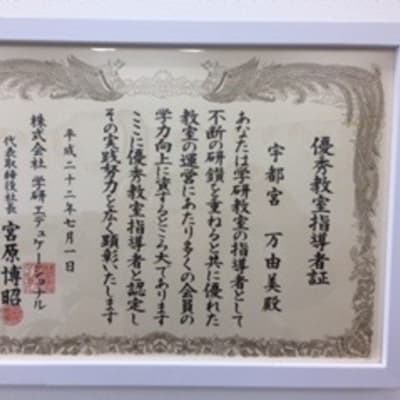 優秀教室指導者証
宇都宮 万由美殿
あなたは学研教室の指導者として
不断の研鑚を重ねると共に優れた
教室の運営にあたり多くの会員の
学力向上に資するところ大であります
ここに優秀教室指導者と認定し
その実践努力を広く顕彰いたします
平成二十二年七月一日
株式会社 学研エデュケーショナル
代表取締役社長 宮原博昭